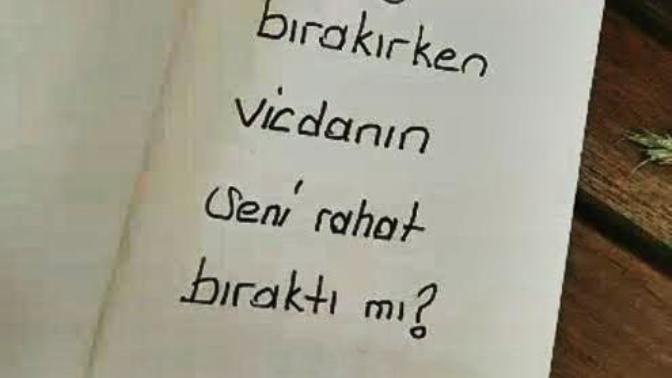 bırakırken
vicdanın
seni rahat
bıraktı mı?